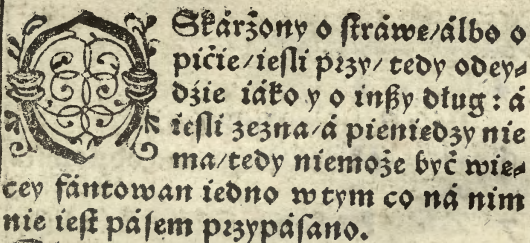 OSkárżony o stráwe/álbo o
pićie/iesli przy/ tedy odey⸗
dźie iáko y o inßy dług : á
iesli zezna/á pieniedzy nie
ma/tedy niemoże być wie⸗
cey fántowan iedno w tym co ná nim
nie iest pásem przypásano.